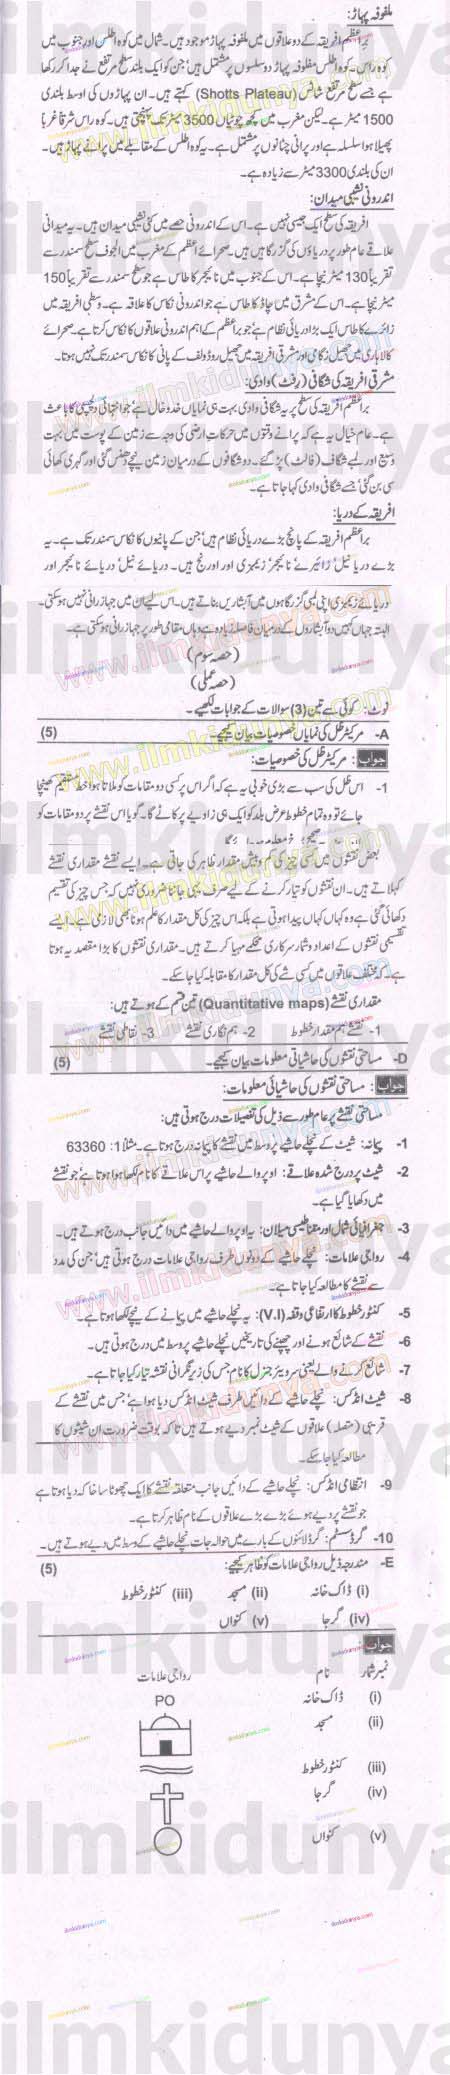 ملفوفہ پہاڑ:
براعظم افریقہ کے دو علاقوں میں ملفوفہ پہاڑ موجود ہیں۔ شمال میں کوہ اطلس اور جنوب میں
کوہ راس۔ کوہ اطلس ملفوفہ پہاڑ دو سلسلوں پر مشتمل ہیں، جن کو ایک بلند سطح مرتفع نے جدا کر رکھا
ہے جسے سطح مرتفع شاٹس (Shotts Plateau) کہتے ہیں۔ ان پہاڑوں کی اوسط بلندی
1500 میٹر ہے۔ لیکن مغرب میں کچھ چوٹیاں 3500 میٹر تک پہنچتی ہیں۔ کوہ راس شرقاً غرباً
پھیلا ہوا سلسلہ ہے اور پرانی چٹانوں پر مشتمل ہے۔ یہ کوہ اطلس کے مقابلے میں پرانے پہاڑ ہیں۔
ان کی بلندی 3300 میٹر سے زیادہ ہے۔
اندرونی نشیبی میدان:
افریقہ کی سطح ایک جیسی نہیں ہے۔ اس کے اندرونی حصے میں کئی نشیبی میدان ہیں۔ یہ میدانی
علاقے عام طور پر دریاؤں کی گزرگاہیں ہیں۔ صحرائے اعظم کے مغرب میں الجوف سطح سمندر سے
تقریباً 130 میٹر نیچا ہے۔ اس کے جنوب میں نائیجر کا طاس ہے جو سطح سمندر سے تقریباً 150
میٹر نیچا ہے۔ اس کے مشرق میں چاڈ کا طاس ہے جو اندرونی نکاس کا علاقہ ہے۔ وسطی افریقہ میں
زائرے کا طاس ایک بڑا دریائی نظام ہے، جو براعظم کے اہم اندرونی علاقوں کا نکاس کرتا ہے۔ صحرائے
کالاہاری میں جھیل نگامی اور مشرقی افریقہ میں جھیل روڈولف کے پانی کا نکاس سمندر تک نہیں ہوتا۔
مشرقی افریقہ کی شگافی (رفٹ) وادی:
براعظم افریقہ کی سطح پر یہ شگافی وادی بہت ہی نمایاں خدوخال ہے، جو انتہائی دلچسپی کا باعث
ہے۔ عام خیال یہ ہے کہ پرانے وقتوں میں حرکات ارضی کی وجہ سے زمین کے پوست میں بہت
وسیع اور لمبے شگاف (فالٹ) پڑ گئے۔ دو شگافوں کے درمیان زمین نیچے دھنس گئی اور گہری کھائی
سی بن گئی، جسے شگافی وادی کہا جاتا ہے۔
افریقہ کے دریا:
براعظم افریقہ کے پانچ بڑے دریائی نظام ہیں، جن کے پانیوں کا نکاس سمندر تک ہے۔ یہ
بڑے دریا نیل، زائیرے، نائیجر، زیمبزی اور اورنج ہیں۔ دریائے نیل، دریائے نائیجر اور
دریائے زیمبزی اپنی لمبی گزرگاہوں میں آبشاریں بناتے ہیں۔ اس لیے ان میں جہازرانی نہیں ہو سکتی۔
البتہ جہاں کہیں دو آبشاروں کے درمیان فاصلہ زیادہ ہے وہاں مقامی طور پر جہازرانی ہو سکتی ہے۔
(حصہ سوم)
(حصہ عملی)
نوٹ: کوئی سے تین (3) سوالات کے جوابات لکھیے۔
A- مرکیٹر ظل کی نمایاں خصوصیات بیان کیجیے۔ (5)
جواب: مرکیٹر ظل کی خصوصیات:
1- اس ظل کی سب سے بڑی خوبی یہ ہے کہ اگر اس پر کسی دو مقامات کو ملاتا ہوا خط مستقیم کھینچا
جائے تو وہ تمام خطوط عرض بلد کو ایک ہی زاویے پر کاٹے گا۔ گویا اس نقشے پر دو مقامات کو
بعض نقشوں میں کسی چیز کی کم و بیش مقدار ظاہر کی جاتی ہے۔ ایسے نقشے مقداری نقشے
کہلاتے ہیں۔ ان نقشوں کو تیار کرنے کے لیے صرف یہی جاننا ضروری نہیں کہ جس چیز کی تقسیم
دکھائی گئی ہے وہ کہاں کہاں پیدا ہوتی ہے بلکہ اس چیز کی کل مقدار کا علم ہونا بھی لازمی ہے۔ ایسے
تقسیمی نقشوں کے اعداد و شمار سرکاری محکمے مہیا کرتے ہیں۔ مقداری نقشوں کا بڑا مقصد یہ ہوتا
ہے کہ مختلف علاقوں میں کسی شے کی کل مقدار کا مقابلہ کیا جا سکے۔
مقداری نقشے (Quantitative maps) تین قسم کے ہوتے ہیں:
1- نقشے ہم مقدار خطوط 2- ہم نگاری نقشے 3- نقاطی نقشے
D- مساحتی نقشوں کی حاشیاتی معلومات بیان کیجیے۔ (5)
جواب: مساحتی نقشوں کی حاشیاتی معلومات:
مساحتی نقشے پر عام طور سے ذیل کی تفصیلات درج ہوتی ہیں:
1- پیمانہ: شیٹ کے نچلے حاشیے پر وسط میں نقشے کا پیمانہ درج ہوتا ہے۔ مثلاً 1: 63360
2- شیٹ پر درج شدہ علاقے: اوپر والے حاشیے پر اس علاقے کا نام لکھا ہوا ہوتا ہے، جو نقشے
میں دکھایا گیا ہے۔
3- جغرافیائی شمال اور مقناطیسی میلان: یہ اوپر والے حاشیے میں دائیں جانب درج ہوتے ہیں۔
4- رواجی علامات: نچلے حاشیے کے دونوں طرف رواجی علامات درج ہوتی ہیں، جن کی مدد
سے نقشے کا مطالعہ کیا جاتا ہے۔
5- کنٹور خطوط کا ارتفاعی وقفہ (V.I): یہ نچلے حاشیے میں پیمانے کے نیچے لکھا ہوتا ہے۔
6- نقشے کے شائع ہونے اور چھپنے کی تاریخیں نچلے حاشیے پر وسط میں درج ہوتی ہیں۔
7- شائع کرنے والے یعنی سرویئر جنرل کا نام جس کی زیر نگرانی نقشہ تیار کیا جاتا ہے۔
8- شیٹ انڈکس: نچلے حاشیے کے دائیں طرف شیٹ انڈکس دیا ہوتا ہے، جس میں نقشے کے
قریبی (متصلہ) علاقوں کے شیٹ نمبر دیے ہوتے ہیں تاکہ بوقت ضرورت ان شیٹوں کا
مطالعہ کیا جا سکے۔
9- انتظامی انڈکس: نچلے حاشیے کے دائیں جانب متعلقہ نقشے کا ایک چھوٹا سا خاکہ دیا ہوتا ہے
جو نقشے پر دیے ہوئے بڑے بڑے علاقوں کے نام ظاہر کرتا ہے۔
10- گرڈ سسٹم: گرڈ لائنوں کے بارے میں حوالہ جات نچلے حاشیے کے وسط میں دیے ہوتے ہیں۔
E- مندرجہ ذیل رواجی علامات کو ظاہر کیجیے: (5)
(i) ڈاک خانہ (ii) مسجد (iii) کنٹور خطوط
(iv) گرجا (v) کنواں
جواب:
نمبر شمار نام رواجی علامات
(i) ڈاک خانہ PO
(ii) مسجد
(iii) کنٹور خطوط
(iv) گرجا
(v) کنواں